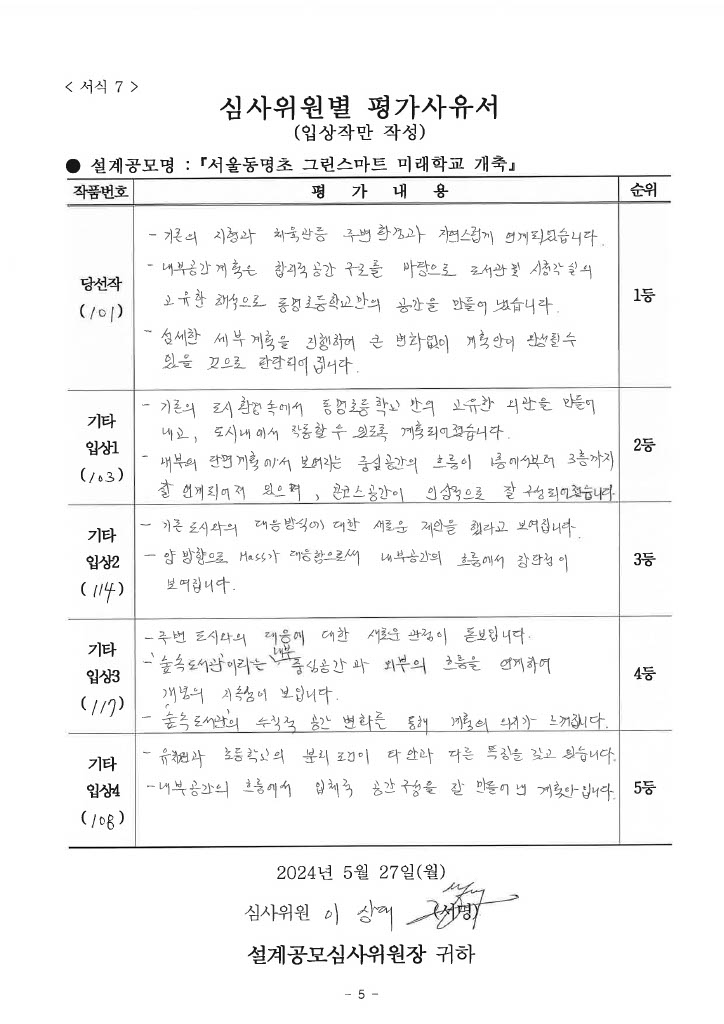 < 서식 7 >
심사위원별 평가사유서
(입상작만 작성)
● 설계공모명 : 『서울동명초 그린스마트 미래학교 개축』
작품번호 평 가 내 용 순위
당선작
(101)
- 기존의 지형과 체육관등 주변환경과 자연스럽게 연계되었습니다.
- 내부공간계획은 합리적공간 구조를 바탕으로 도서관 및 시청각실의
고유한 해석으로 동명초등학교만의 공간을 만들어 냈습니다.
- 섬세한 세부계획을 진행하여 큰 변화없이 계획안이 완성될 수
있을 것으로 판단되어 집니다.
1등
기타
입상1
(103)
- 기존의 도시환경속에서 동명초등학교만의 고유한 외관을 만들어
내고, 도시내에서 작동할 수 있도록 계획되어졌습니다.
- 내부의 단면계획에서 보여지는 중심공간의 흐름이 1층에서부터 3층까지
잘 연계되어져 있으며, 콘코스공간이 인상적으로 잘 구성되어졌습니다.
2등
기타
입상2
(114)
- 기존 도시와의 대응방식에 대한 새로운 제안을 했다고 보여집니다.
- 양 방향으로 Mass가 대응함으로써 내부공간의 흐름에서 장단점이
보여집니다.
3등
기타
입상3
(117)
- 주변 도시와의 대응에 대한 새로운 관점이 돋보입니다.
- '숲속도서관'이라는 내부 중심공간과 외부의 흐름을 연계하여
개념의 지속성이 보입니다.
- '숲속도서관'의 수직적 공간 변화를 통해 계획의 의지가 느껴집니다.
4등
기타
입상4
(108)
- 유치원과 초등학교의 분리 조건이 타안과 다른 특징을 갖고 있습니다.
- 내부공간의 흐름에서 입체적 공간구성을 잘 만들어 낸 계획안입니다.
5등
2024년 5월 27일(월)
심사위원 이 상대 (서명)
설계공모심사위원장 귀하
- 5 -